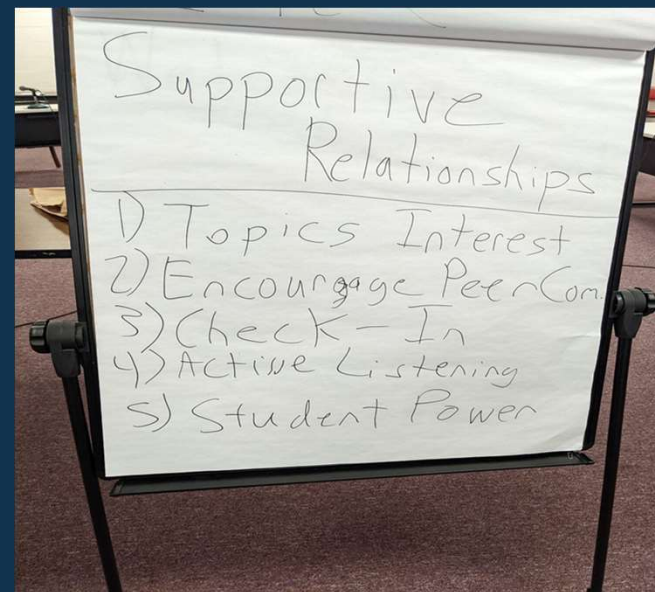 Supportive
Relationships
1) Topics Interest
2) Encourgage Peer Com.
3) Check-In
4) Active Listening
5) Student Power